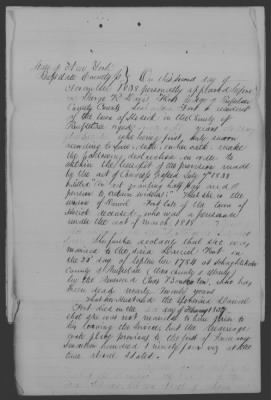 State of New York
Rensselaer County SS On this second day of
November 1838 personally appeared before
me George R. Davis First Judge of Rensselaer
County Courts Fort a resident
of the town of Hoosick in the County of
Rensselaer aged eight years
who being first duly sworn
according to Law doth on her oath make
the following declaration in order to
obtain the benefit of the provision made
by the act of Congress passed July 7th 1838
entitled "An act granting half pay and
pensions to certain widows" That she is the
widow of Daniel Fort late of the town of
Hoosick deceased, who was a pensioner
under the act of March 1818
She further declares that she was
married to the said Daniel Fort on
the day of September 1784 at Schaghticoke
County of Rensselaer (then county of Albany)
by the Reverend who has
been dead nearly twenty years
That her Husband the aforesaid Daniel
Fort died on the day of February 1837
that she was not married to him prior to
his leaving the service, but the marriage
took place previous to the first of January
Seventeen hundred & ninety four viz at the
time above stated.